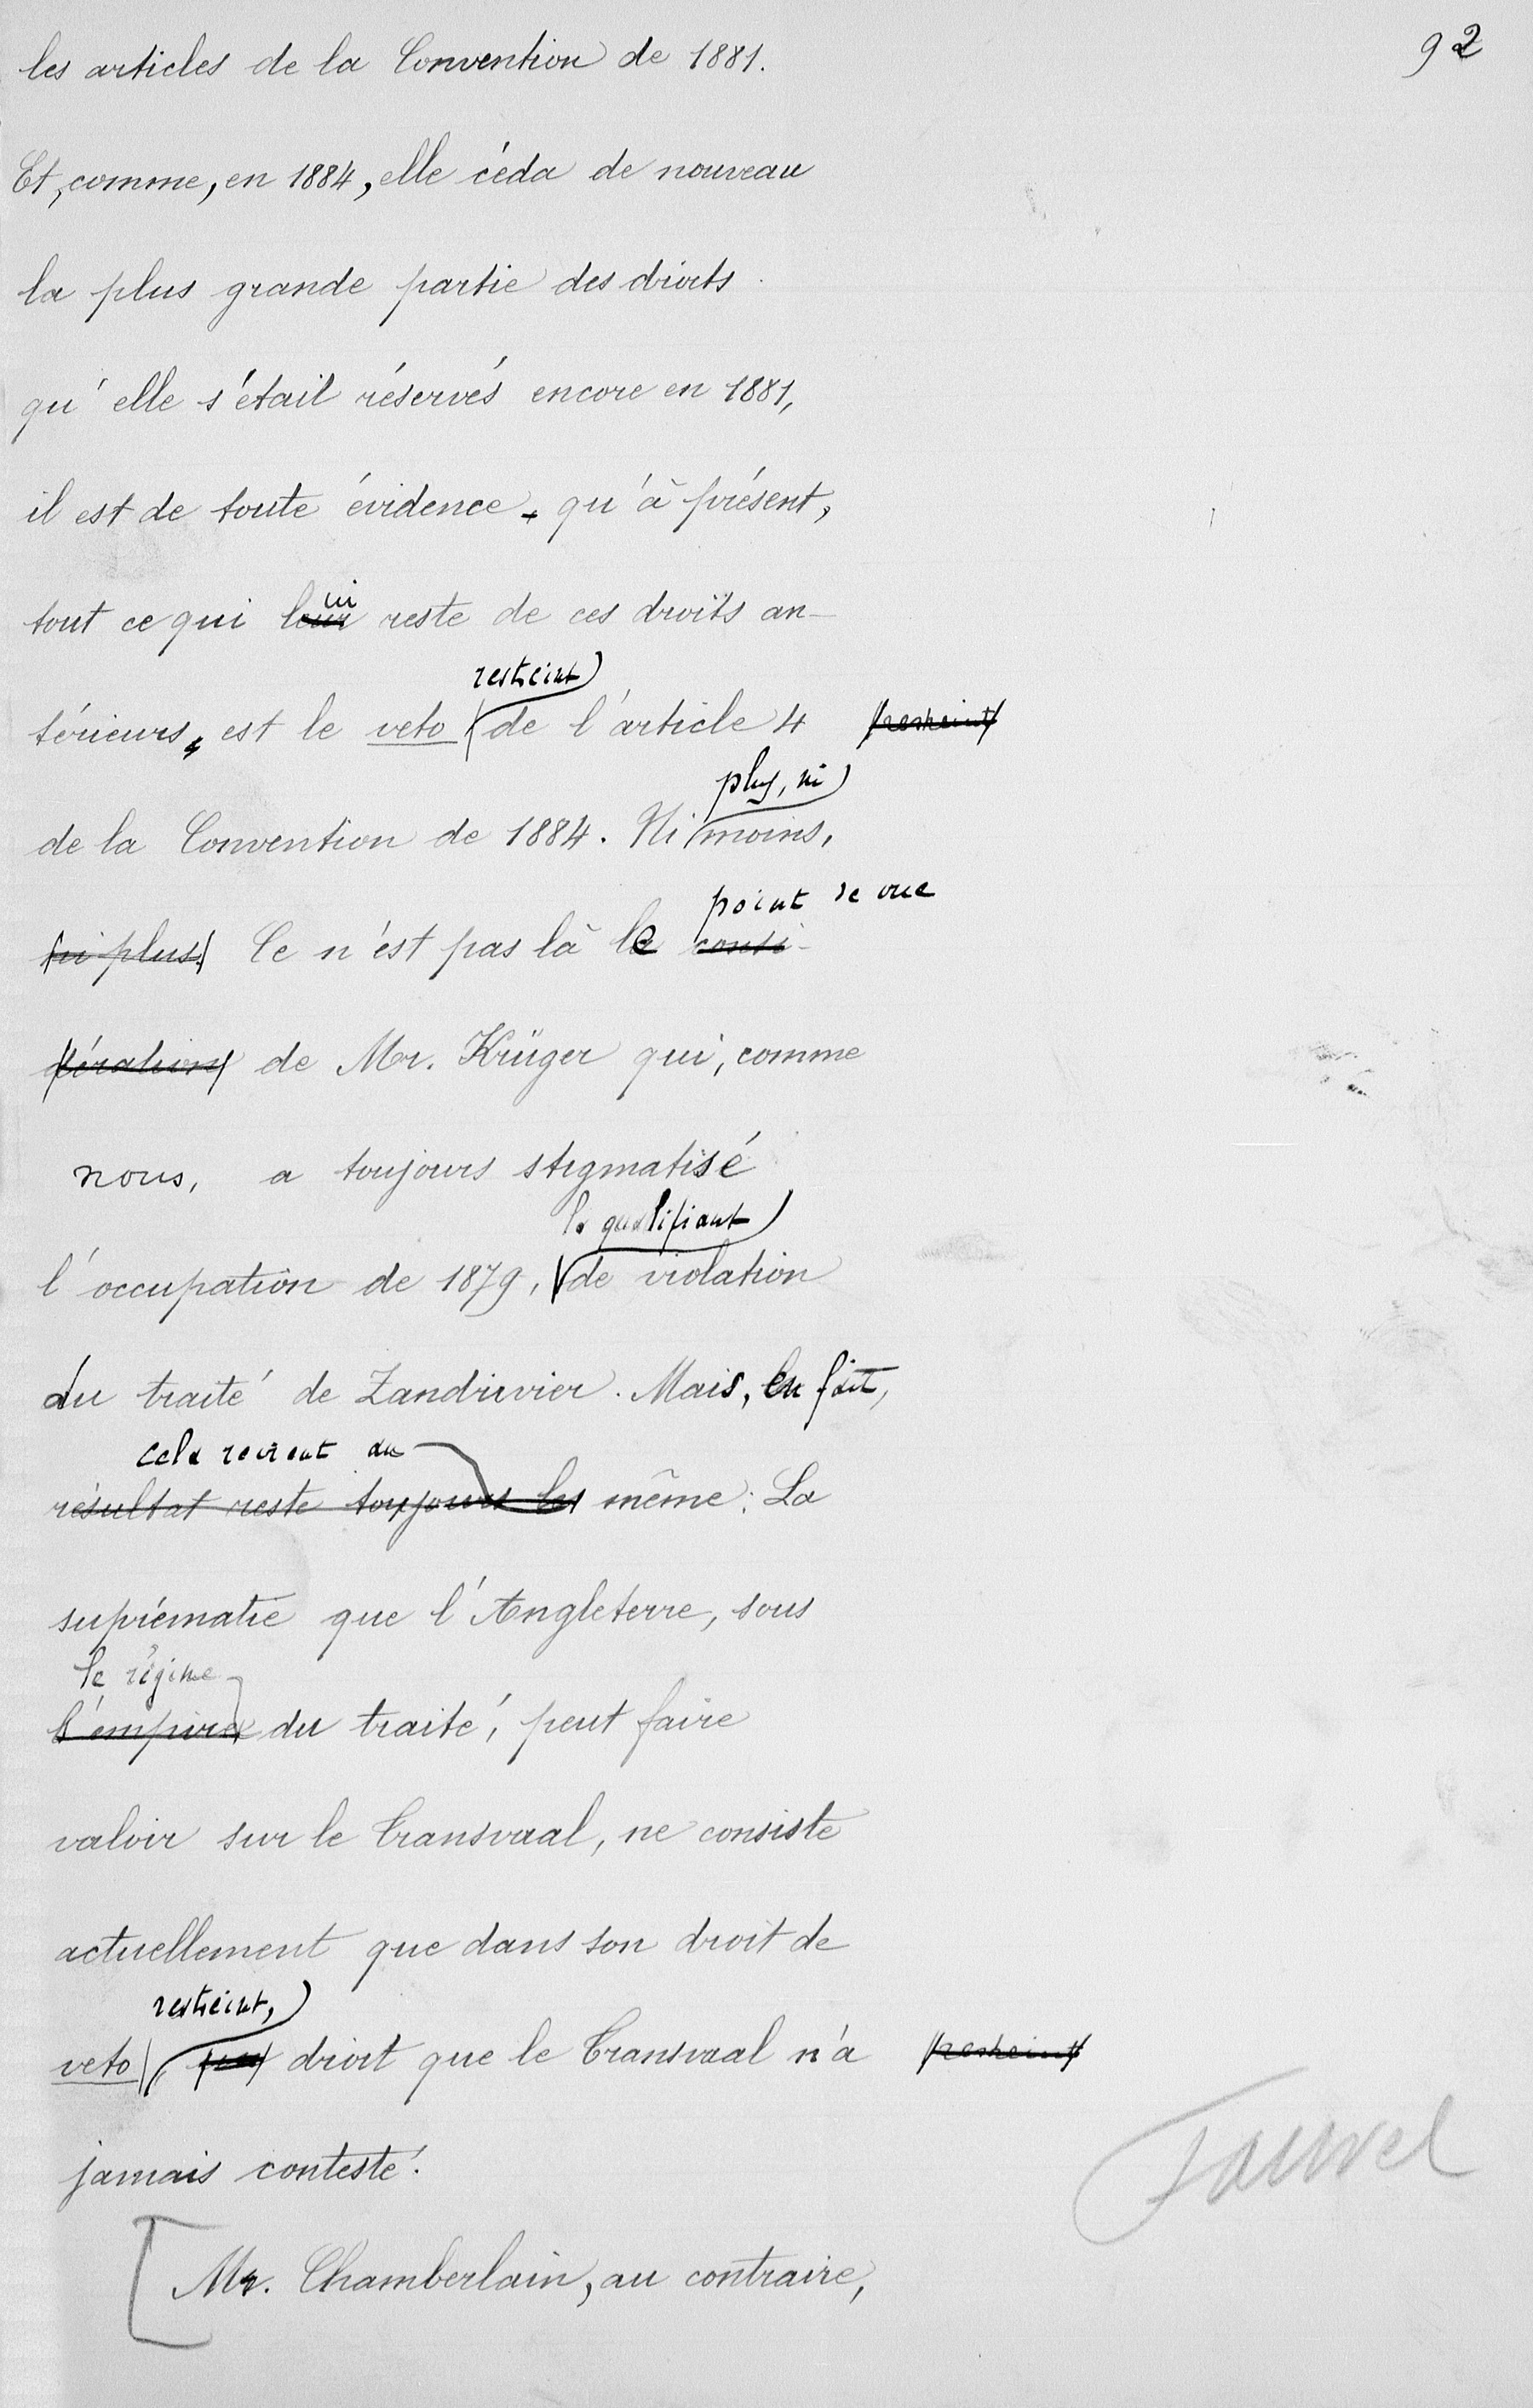 92
les articles de la Convention de 1881.
Et, comme, en 1884, elle céda de nouveau
la plus grande partie des droits
qu'elle s'était réservés encore en 1881,
il est de toute évidence qu'à présent,
ui
tout ce qui leur reste de ces droits an-
restreint
térieurs, est le veto de l'article 4 restreint
plus, ni
de la Convention de 1884. Ni moins,
point de vue
ni plus. Ce n'est pas là le consi-
dération de Mr. Krüger qui, comme
nous, a toujours stigmatisé
la qualifiant
l'occupation de 1879, de violation
du traité de Zandrivier. Mais, en fait,
cela revient au
résultat reste toujours les même: La
suprématie que l'Angleterre, sous
le régime
l'empire du traité, peut faire
valoir sur le Transvaal, ne consiste
actuellement que dans son droit de
restreint,
veto droit que le Transvaal n'a restreint
jamais contesté.
Fauvel
[Mr. Chamberlain, au contraire,